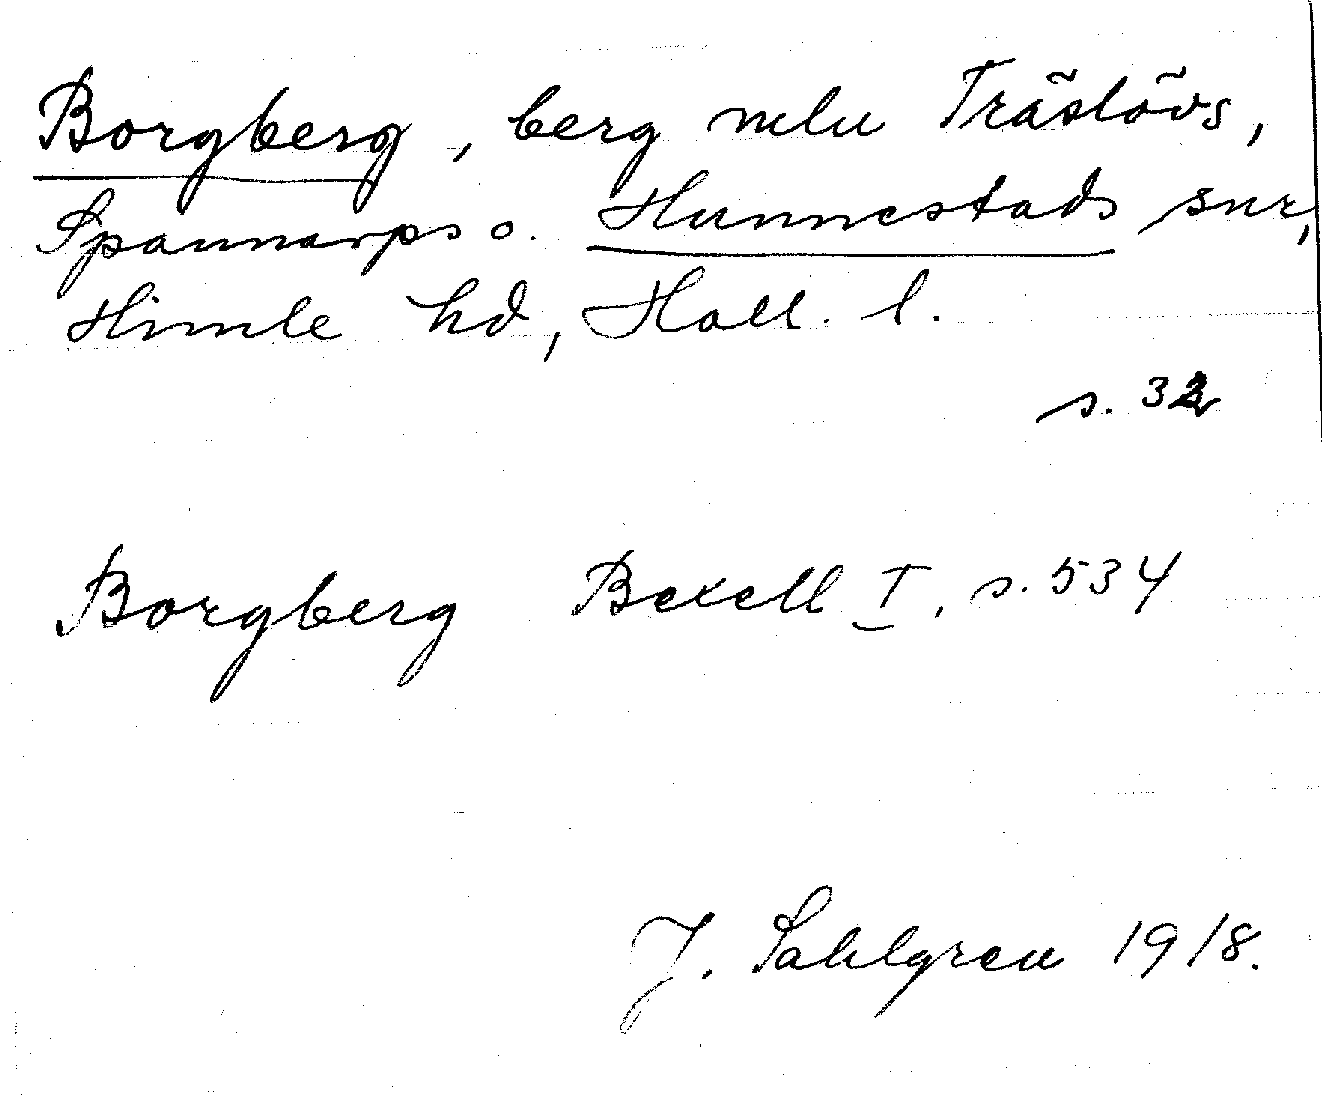 Borgberg, berg mlu Träslövs,
Spannarps o. Hunnestads snr,
Himle hd, Hall. l.
s. 32
Borgberg Bexell I, s. 534
J. Sahlgren 1918.